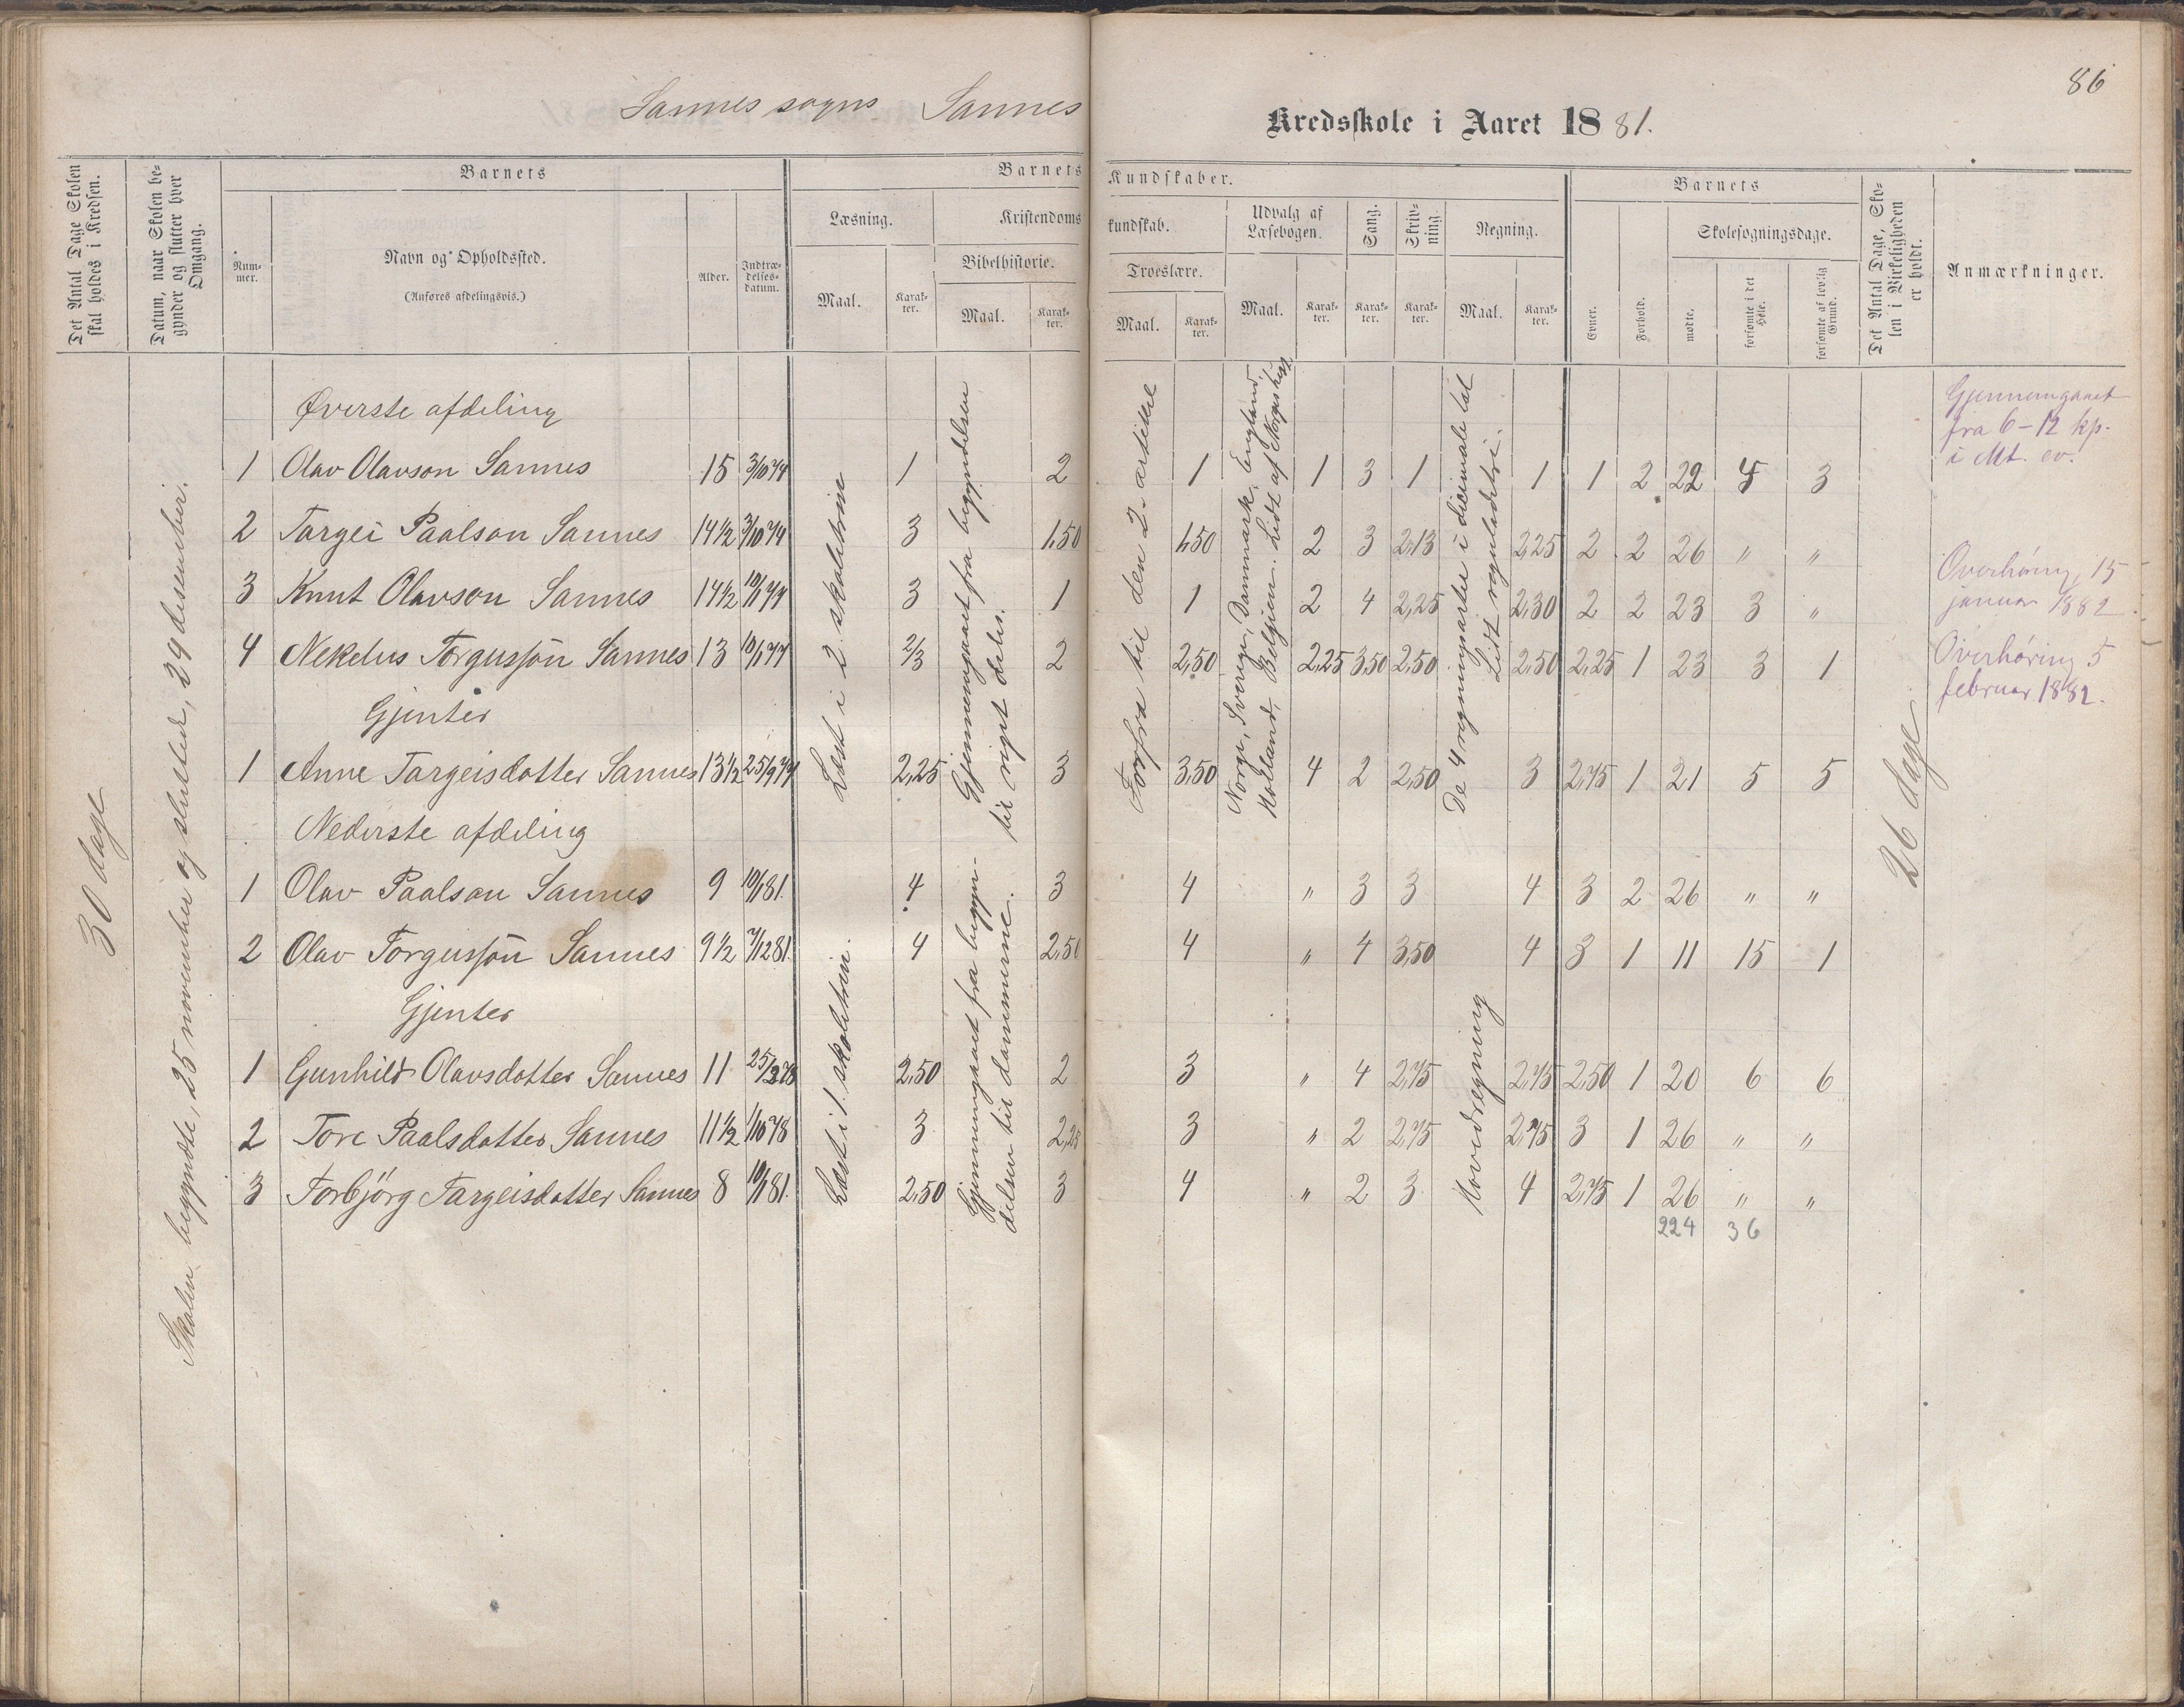 86
Sannes sogns Sannes Kredsskole i Aaret 1881.
Det Antal Dage Skolen skal holdes i Kredsen.
Datum, naar Skolen begynder og slutter hver Omgang.
Barnets
Nummer.
Navn og Opholdssted.
(Anføres afdelingsvis.)
Alder.
Indtrædelsesdatum.
Barnets Kundskaber.
Læsning.
Maal.
Karakter.
Kristendomskundskab.
Bibelhistorie.
Maal.
Karakter.
Troeslære.
Maal.
Karakter.
Udvalg af Læsebogen.
Maal.
Karakter.
Sang.
Karakter.
Skrivning.
Karakter.
Regning.
Maal.
Karakter.
Barnets
Evner.
Forhold.
Skolesøgningsdage.
mødte.
forsømte i det Hele.
forsømte af lovlig Grund.
Det Antal Dage, Skolen i Virkeligheden er holdt.
Anmærkninger.
30 dage
Skolen begyndte, 25 november og sluttede, 29 desember.
Øverste afdeling
1 Olav Olavson Sannes 15 3/10 74 1 2 1 1 3 1 1 1 2 22 4 3
2 Targei Paalson Sannes 14 1/2 3/10 74 3 1,50 1,50 2 3 2,13 2,25 2 2 26 " "
3 Knut Olavson Sannes 14 1/2 10/1 74 3 1 1 2 4 2,25 2,30 2 2 23 3 "
4 Nekelus Torgussøn Sannes 13 10/1 77 2/3 2 2,50 2,25 3,50 2,50 2,50 2,25 1 23 3 1
Gjenter
1 Anne Targeisdotter Sannes 13 1/2 25/9 77 2,25 3 3,50 4 2 2,50 3 2,75 1 21 5 5
Nederste afdeling
1 Olav Paalson Sannes 9 10/1 81. 4 3 4 " 3 3 4 3 2 26 " "
2 Olav Torgussøn Sannes 9 1/2 7/12 81. 4 2,50 4 " 4 3,50 4 3 1 11 15 1
Gjenter
1 Gunhild Olavsdotter Sannes 11 25/2 78 2,50 2 3 " 4 2,75 2,75 2,50 1 20 6 6
2 Tore Paalsdotter Sannes 11 1/2 1/10 78 3 2,25 3 " 2 2,75 2,75 3 1 26 " "
3 Torbjörg Targeisdotter Sannes 8 10/1 81. 2,50 3 4 " 2 3 4 2,75 1 26 " "
224 36
Læst i 2. skoletrin
Læst i 1. skoletrin.
Gjennemgaaet fra begyndelsen
til riget delis.
Gjennemgaaet fra begyn-
delsen til dommerne.
Forfra til den 2. artikkel
Norge, Sverige, Danmark, England,
Holland, Belgien. Lidt af Norges hist.
De 4 regningsarter i decimale tal
Lidt reguladetri.
Hovedregning
26 dage
Gjennemgaaet
fra 6-12 kp.
i Mt. ev.
Overhøring 15
januar 1882.
Overhøring 5
februar 1882.